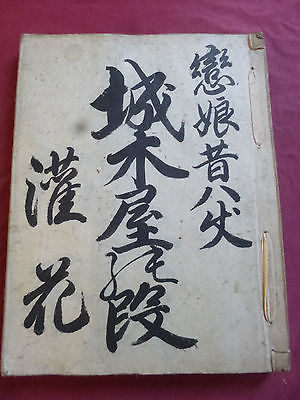 戀娘昔八丈
城木屋の段
灌花